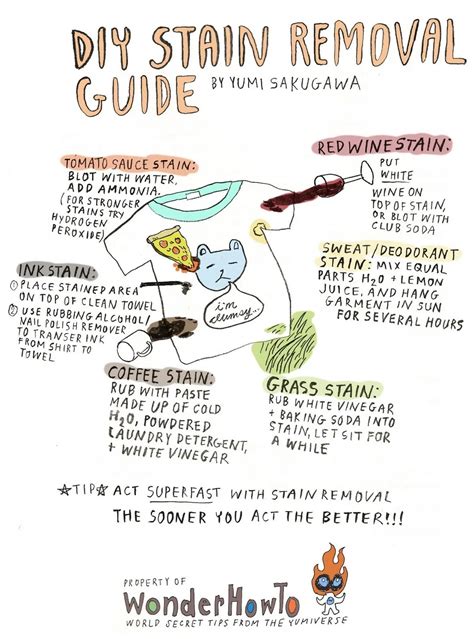 DIY STAIN REMOVAL
GUIDE BY YUMI SAKUGAWA
TOMATO SAUCE STAIN:
BLOT WITH WATER,
ADD AMMONIA.
(FOR STRONGER
STAINS TRY
HYDROGEN
PEROXIDE)
RED WINE STAIN:
PUT
WHITE
WINE ON
TOP OF STAIN,
OR BLOT WITH
CLUB SODA
INK STAIN:
① PLACE STAINED AREA
ON TOP OF CLEAN TOWEL
② USE RUBBING ALCOHOL
NAIL POLISH REMOVER
TO TRANSER INK
FROM SHIRT TO
TOWEL
SWEAT/DEODORANT
STAIN: MIX EQUAL
PARTS H2O + LEMON
JUICE, AND HANG
GARMENT IN SUN
FOR SEVERAL HOURS
i'm
clumsy...
COFFEE STAIN:
RUB WITH PASTE
MADE UP OF COLD
H2O, POWDERED
LAUNDRY DETERGENT,
+ WHITE VINEGAR
GRASS STAIN:
RUB WHITE VINEGAR
+ BAKING SODA INTO
STAIN, LET SIT FOR
A WHILE
☆TIP☆ ACT SUPERFAST WITH STAIN REMOVAL
THE SOONER YOU ACT THE BETTER!!!
PROPERTY OF
WonderHowTo
WORLD SECRET TIPS FROM THE YUMIVERSE